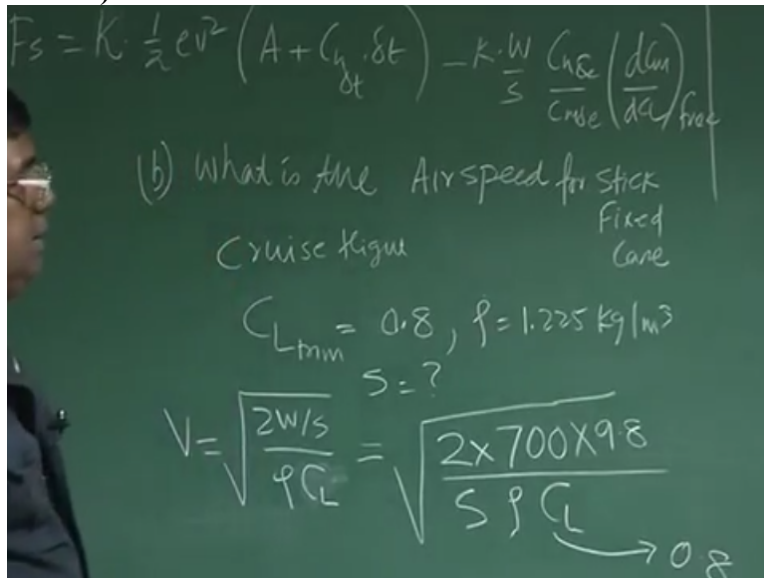 Fs = K. 1/2 ev² (A + C_hδt . δt) - K. W/S C_hδe/C_mδe (dCm/dCL)free
(b) What is the Airspeed for stick
Fixed
Case
Cruise
C_Ltrim = 0.8, ρ = 1.225 kg/m³
S = ?
V = √(2W/S / ρC_L) = √(2×700×9.8 / SρC_L)
→ 0.8